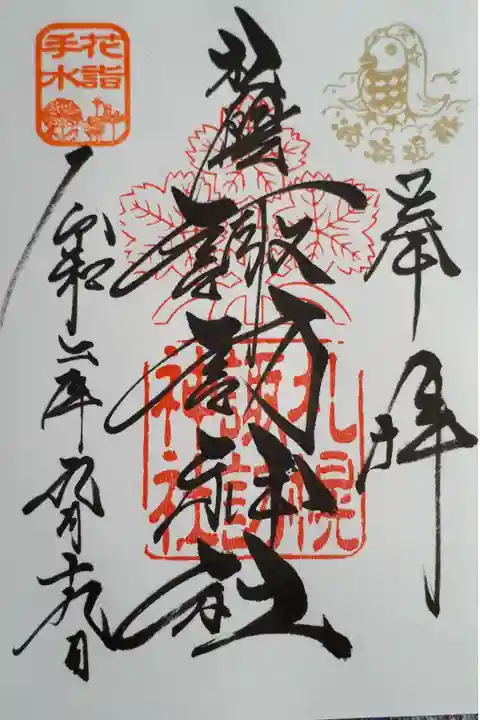 奉拝
札幌諏訪神社
令和二年九月十九日
花詣
手水
札幌
諏訪
神社